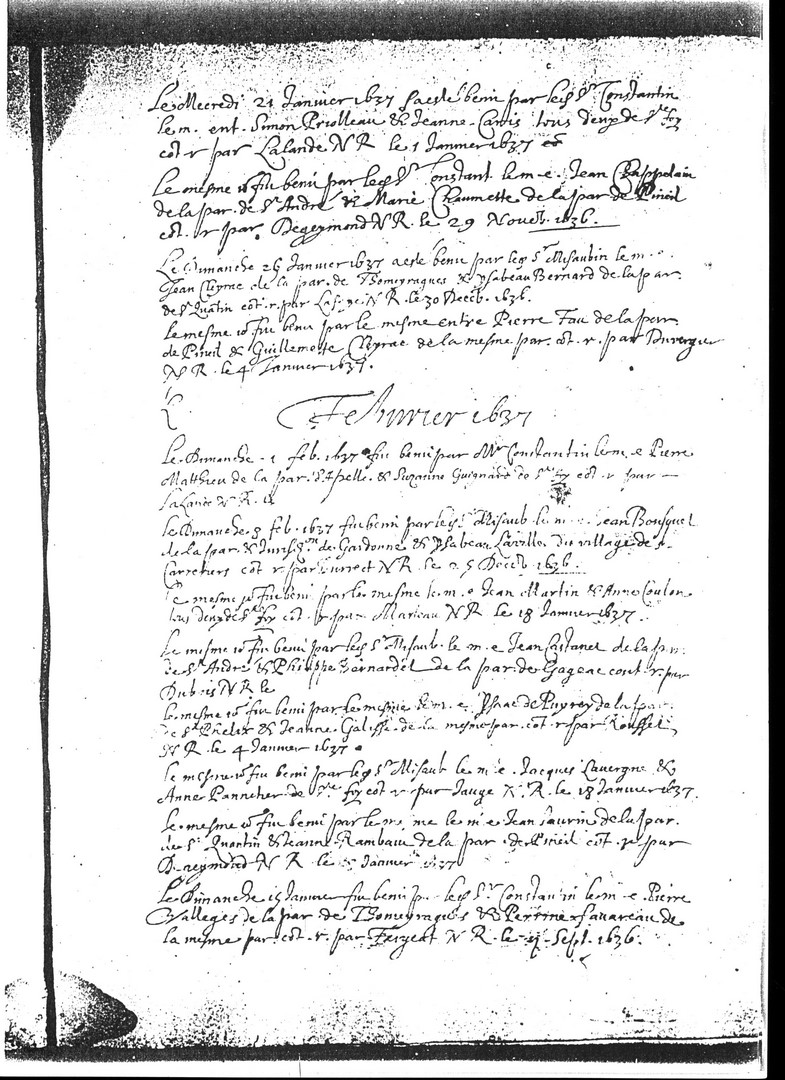 Le Mecredi 21 Janvier 1637 a este beni par led Sr Constantin
le m. ent. Simon Priolleau & Jeanne tous deux de Ste foy
cot. r par Lalande N R le 1 Janvier 1637
Le mesme io. fut beni par led Sr Constant. le m. e. Jean Chappelain
de la par. de St André & Marie Chaumette de la par de Pineil
cot. r par Degeymond N R. le 29 Novēb. 1636.
Le Dimanche 25 Janvier 1637 a este beni par led Sr Misaubin le m. e.
Jean Cleyrac de la par. de Thomeyragues & Ysabeau Bernard de la par.
de St Quātin cōt. r. par N R. le 30 Decēb. 1636.
Le mesme io. fut beni par le mesme entre Pierre Fau de la par.
de Pineil & Guillemotte Cleyrac de la mesme par. cōt. r. par Duvergier
N R. le 4 Janvier 1637.
Febvrier 1637
Le Dimanche 1 feb. 1637 fut beni par Mr Constantin le m. e Pierre
Matthieu de la par. & Suzanne Guignard de Ste foy cōt. r par
Lalande N. R. le
Le Dimanche 8 feb. 1637 fut beni par led Sr Misaub. le m. e Jean Bousquet
de la par. & Jurisd.on de Gardonne & Ysabeau Laville du village de
cot r par N R. le 25 Decēb 1636.
Le mesme io fut beni par le mesme le m. e Jean Martin & Anne Coulon
tous deux de Ste foy cot. r par Marteau N R. le 18 Janvier 1637.
Le mesme io. fut beni par led Sr Misaub. le m. e Jean Castanet de la par.
de St André & Philippe Bernardet de la par. de Gageac cont. r. par
Dubois N R. le
Le mesme io fut beni par le mesme le m. e. Ysaac de Puyrey de la par.
de St Phelix & Jeanne de la mesme par. cot. r par Rousset
N R. le 4 Janvier 1637.
Le mesme io fut beni par led Sr Misaub le m. e. Jacques Lavergne &
Anne Pannetier de Ste foy cot r par Jauge N. R. le 18 Janvier 1637.
Le mesme io fut beni par le mesme le m. e Jean Saurin de la par.
de St Quantin & Jeanne Rambaud de la par. de Pineil cōt. r par
Degeymond N R le Janvier 1637
Le Dimanche 15 Janvier fut beni p. led Sr Constantin le m. e Pierre
Valleges de la par de Thomeyragues & Perrine Favareau de
la mesme par. cōt. r. par N R. le Sept. 1636.